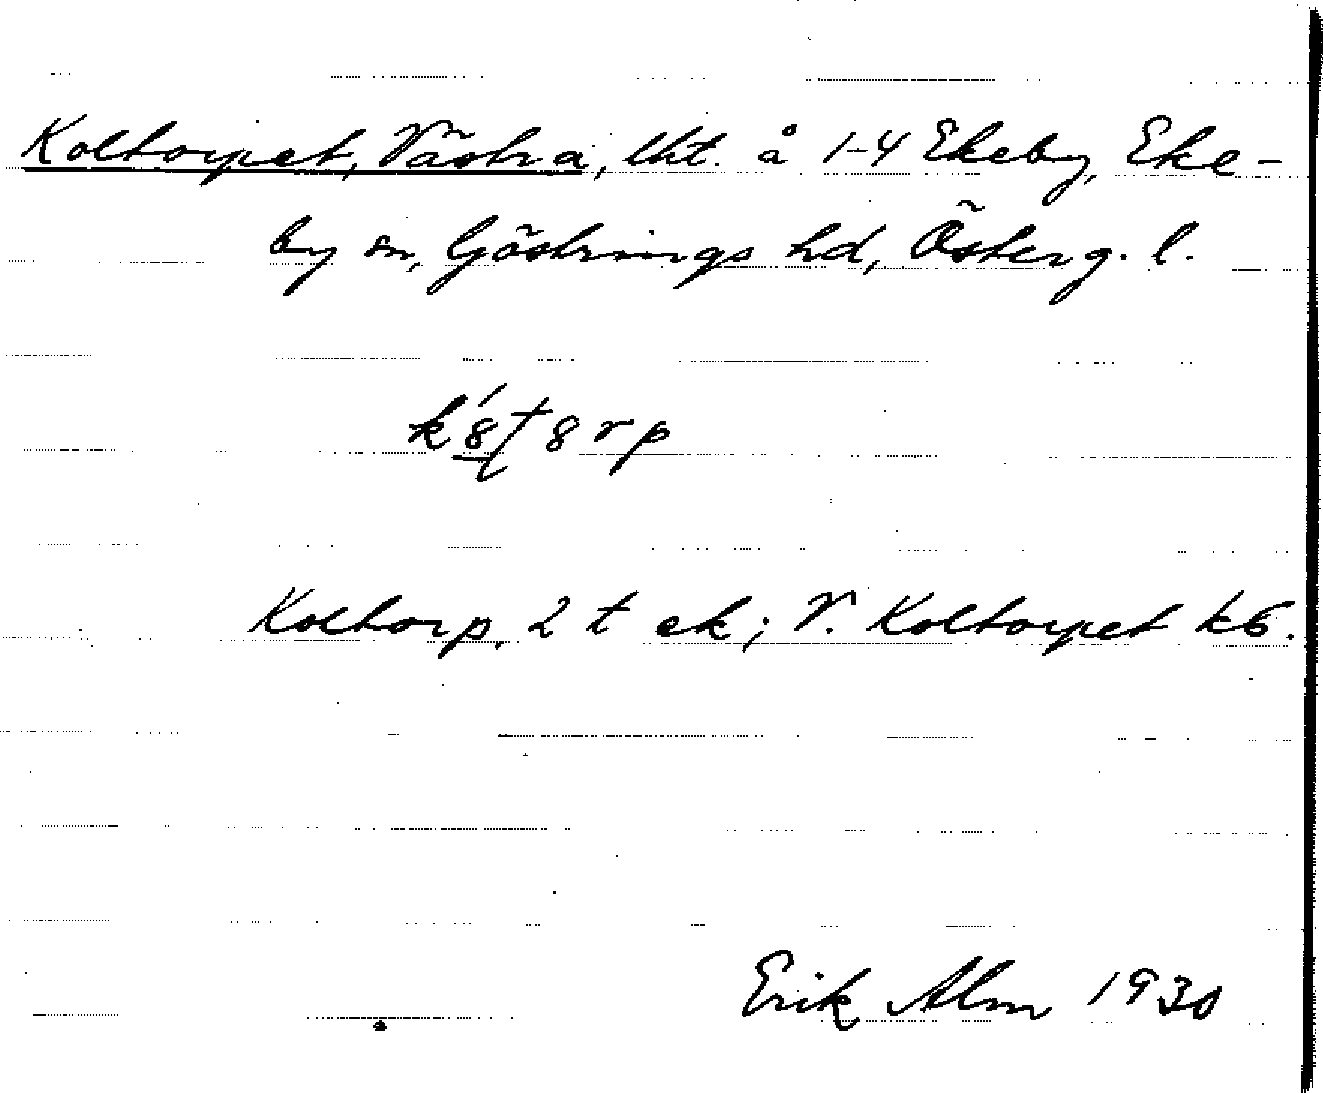 Koltorpet, Västra, lht. å 1-4 Ekeby, Eke-
by sn, Göstrings hd, Österg. l.
Koltorp, 2 t ek; V. Koltorpet k6.
Erik Alm 1930